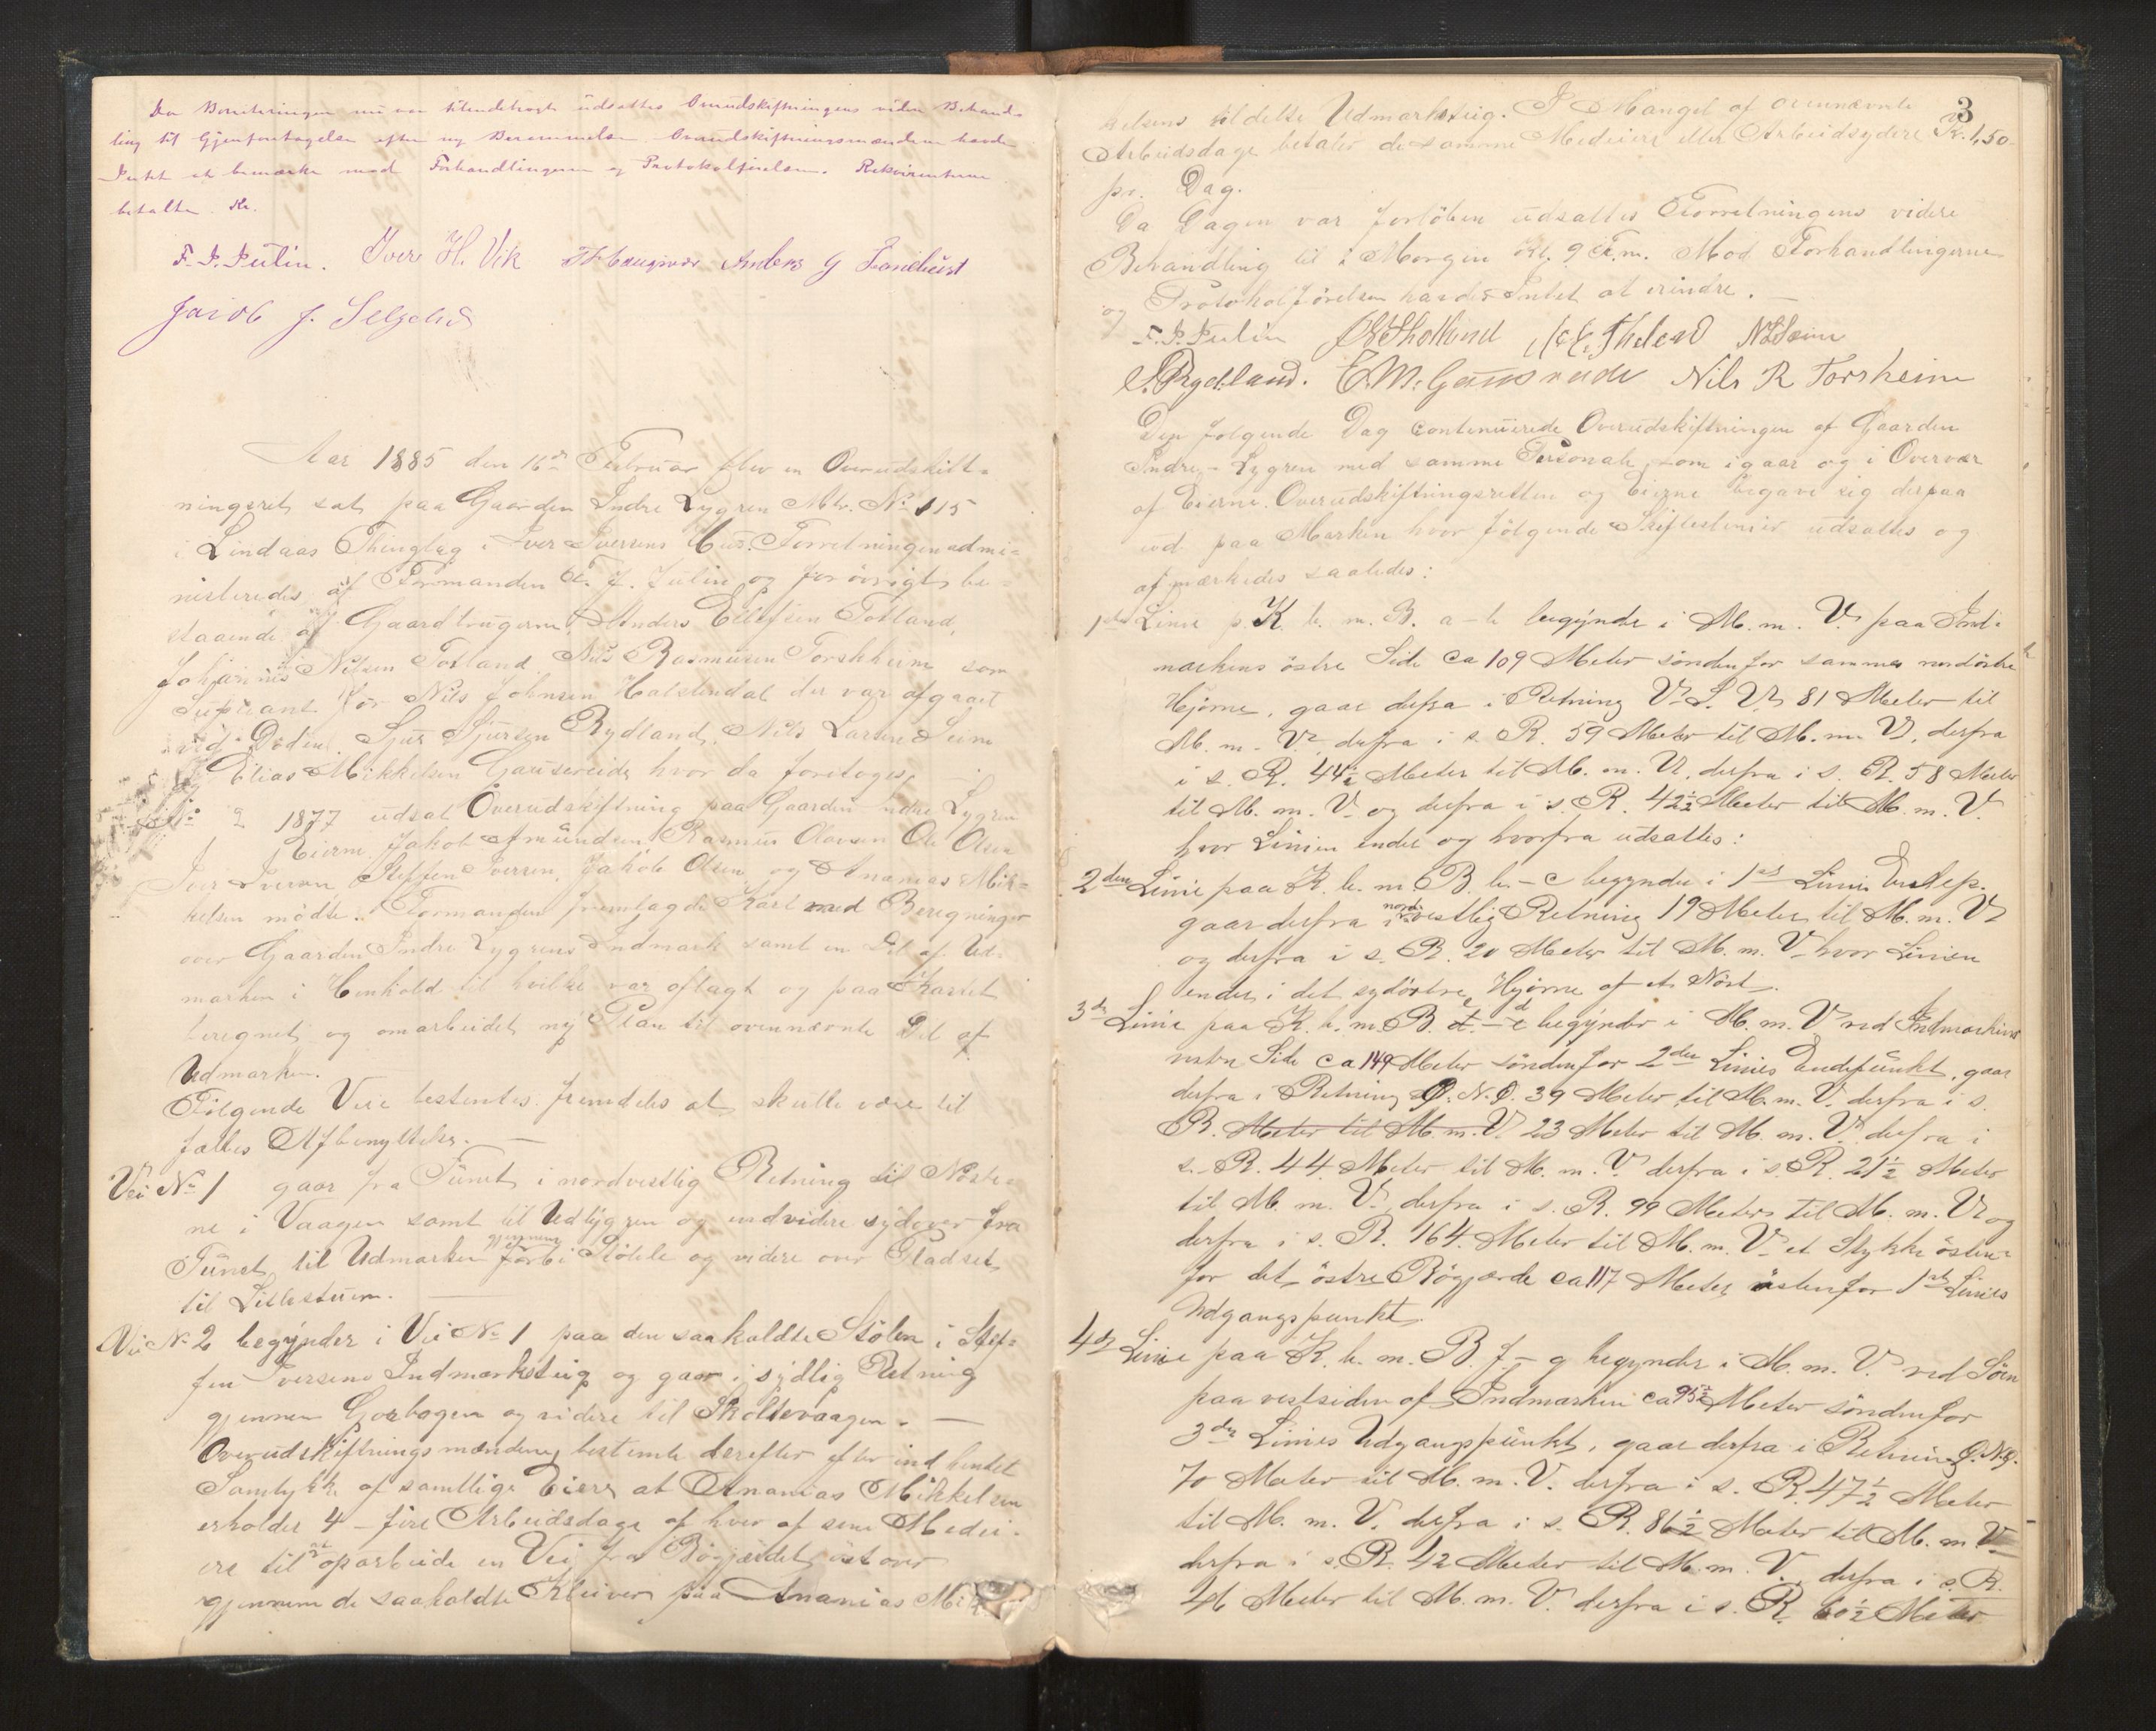 Da Boniteringen nu var tilendebragt udsattes Overudskiftningens videre Behand-
ling til Gjenforetagelse efter ny Berammelse. Overudskiftningsmændene havde
Intet at bemærke mod Forhandlingerne og Protokolførelsen. Rekvirenterne
betalte Kr.
F. J. Julin. Iver H. Vik Anders G
Jacob J.
Aar 1885 den 16de Februar blev en Overudskift-
ningsret sat paa Gaarden Indre Lygren Mtr. No 115
i Lindaas Thinglag i Iver Iversens Hus. Forretningen admi-
nistreredes af Formanden F. J. Julin og forøvrigt be-
staaende af Gaardbrugerne Anders Ellefsen Totland,
Johannes Nilsen Totland, Nils Rasmusen Forshheim som
Supleant for Nils Johnsen Hatlendal der var afgaaet
ved Døden, Sjur Sjursen Rydland, Nils Larsen Seim
og Elias Mikkelsen Gausereide hvor da foretoges
No 2 1877 udsat Overudskiftning paa Gaarden Indre Lygren
Eierne Jakob Amundsen Rasmus Olavsen Ole Olsen
Iver Iversen, Steffen Iversen, Jakob Olsen og Ananias Mik-
kelsen mødte. Formanden fremlagde Kart med Beregninger
over Gaarden Indre Lygrens Indmark samt en Del af Ud-
marken i Henhold til hvilke var oflagt og paa Kartet
beregnet og omarbeidet ny Plan til ovennævnte Del af
Udmarken.
Følgende Veie bestemtes fremdeles at skulle være til
fælles Afbenyttelse. —
Vei No 1 gaar fra Tunet i nordvestlig Retning til Nøste-
ne i Vaagen samt til Udlygren og endvidere sydover fra
Tunet til Udmarken gjennem forbi Stølele og videre over Pladset
til Lillestuen. —
Vei No 2 begynder i Vei No 1 paa den saakaldte Stølen i Stef-
fen Iversens Indmarksteig og gaar i sydlig Retning
gjennem Gjorhagen og videre til Skoltevaagen. —
Overudskiftningsmændene bestemte derefter efter indhentet
Samtykke af samtlige Eiere at Ananias Mikkelsen
erholder 4 – fire Arbeidsdage af hver af sine Medei-
ere til at oparbeide en Vei fra Bøgjærdet østover
gjennem de saakaldte Kleiver paa Ananias Mik
3
kelsens tildelte Udmarksteig. I Mangel af ovennævnte
Arbeidsdage betaler de samme Medeiere eller Arbeidsydere Kr. 1,50
pr. Dag.
Da Dagen var forløben udsattes Forretningens videre
Behandling til i Morgen Kl. 9 F.m. Mod Forhandlingerne
og Protokolførelsen havdes Intet at erindre. —
F. J. Julin NLSeim
S. Rydland. E. M. Gausereide Nils R Forsheim
Den følgende Dag continuerede Overudskiftningen af Gaarden
Indre-Lygren med samme Personale som igaar og i Overvær
af Eierne. Overudskiftningsretten og Eierne begave sig derpaa
ud paa Marken hvor følgende Skiftelinier udsattes og
afmærkedes saaledes:
1ste Linie p. K. b. m. B. a–b begynder i M. m. V. paa Ind-
markens østre Side ca 109 Meter søndenfor sammes nordøstre
Hjørne, gaar derfra i Retning V. S. V. 81 Meter til
M. m. V. derfra i s. R. 59 Meter til M. m. V. derfra
i s. R. 44½ Meter til M. m. V. derfra i s. R. 58 Meter
til M. m. V. og derfra i s. R. 42½ Meter til M. m. V.
hvor Linien ender og hvorfra udsattes:
2den Linie paa K. b. m. B. b–c begynder i 1ste Linies Endep.
gaar derfra i nordvestlig Retning 19 Meter til M. m. V.
og derfra i s. R. 20 Meter til M. m. V. hvor Linien
ender i det sydøstre Hjørne af et Nøst.
3die Linie paa K. b. m. B. d–e begynder i M. m. V. ved Indmarkens
vestre Side ca 149 Meter søndenfor 2den Linies Endepunkt, gaar
derfra i Retning Ø. N. Ø. 39 Meter til M. m. V. derfra i s.
R. Meter til M. m. V. 23 Meter til M. m. V. derfra i
s. R. 44 Meter til M. m. V. derfra i s. R. 21½ Meter
til M. m. V. derfra i s. R. 99 Meter til M. m. V. og
derfra i s. R. 164 Meter til M. m. V. et Stykke østen-
for det østre Bøgjærde ca 117 Meter østenfor 1ste Linies
Udgangspunkt.
4de Linie paa K. b. m. B. f–g begynder i M. m. V. ved Søen
paa vestsiden af Indmarken ca 95½ Meter søndenfor
3die Linies Udgangspunkt, gaar derfra i Retning Ø. N. Ø.
70 Meter til M. m. V. derfra i s. R. 47½ Meter
til M. m. V. derfra i s. R. 86½ Meter til M. m. V.
derfra i s. R. 42 Meter til M. m. V. derfra i s. R.
46 Meter til M. m. V. derfra i s. R. 60½ Meter